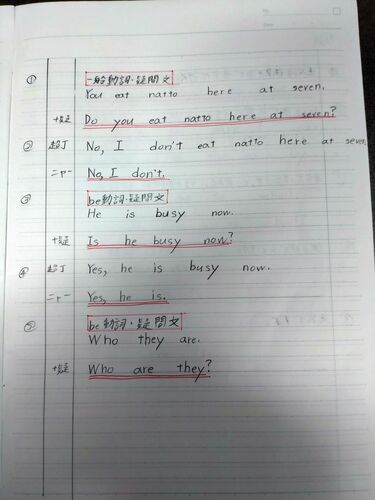 ① 一般動詞・疑問文
You eat natto here at seven.
+疑 Do you eat natto here at seven?
② 超丁 No, I don't eat natto here at seven.
ニャー No, I don't.
③ be動詞・疑問文
He is busy now.
+疑 Is he busy now?
④ 超丁 Yes, he is busy now.
ニャー Yes, he is.
⑤ be動詞・疑問文
Who they are.
+疑 Who are they?